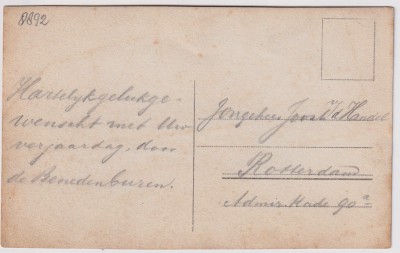 A892
Hartelijk gelukge-
wenscht met Uw
verjaardag, door
de Benedenburen.
Jongeheer Joost v/d Handel
Rotterdam
Admir. Kade 90a